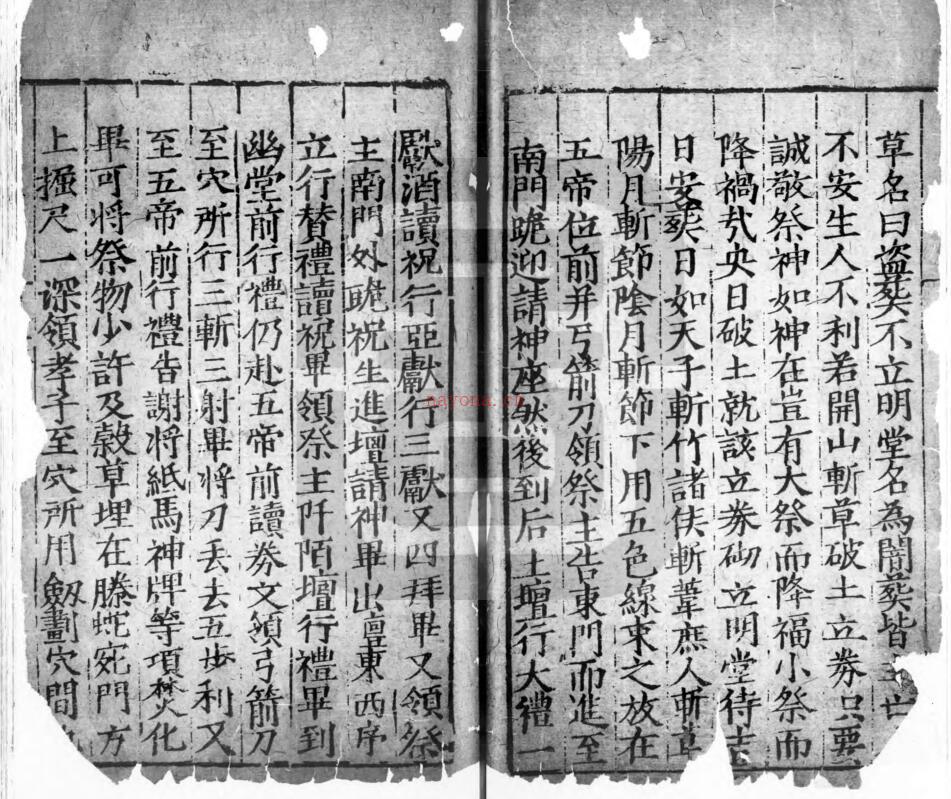 草名曰盗葬不立明堂名為闇葬皆
不安生人不利若開山斬草破土立券只要
誠敬祭神如神在豈有大祭而降福小祭而
降禍㢤央日破土就該立券砌立明堂待
日安葬日如天子斬竹諸侯斬葦庶人斬草
陽月斬節陰月斬節下用五色線束之放在
五帝位前并弓箭刀領祭主告東門而進至
南門跪迎請神座然後到后土壇行大禮一
獻酒讀祝行亞獻行三獻又四拜畢又領祭
主南門外跪祝生進壇請神畢出壇東西序
立行賛禮讀祝畢領祭主阡陌壇行禮畢到
幽堂前行禮仍赴五帝前讀券文領弓箭刀
至穴所行三斬三射畢将刀丢去五步利又
至五帝前行禮告謝将紙馬神牌等項焚化
畢可将祭物少許及穀草埋在螣蛇宛門方
上掘尺一深領孝子至穴所用劔劃穴間